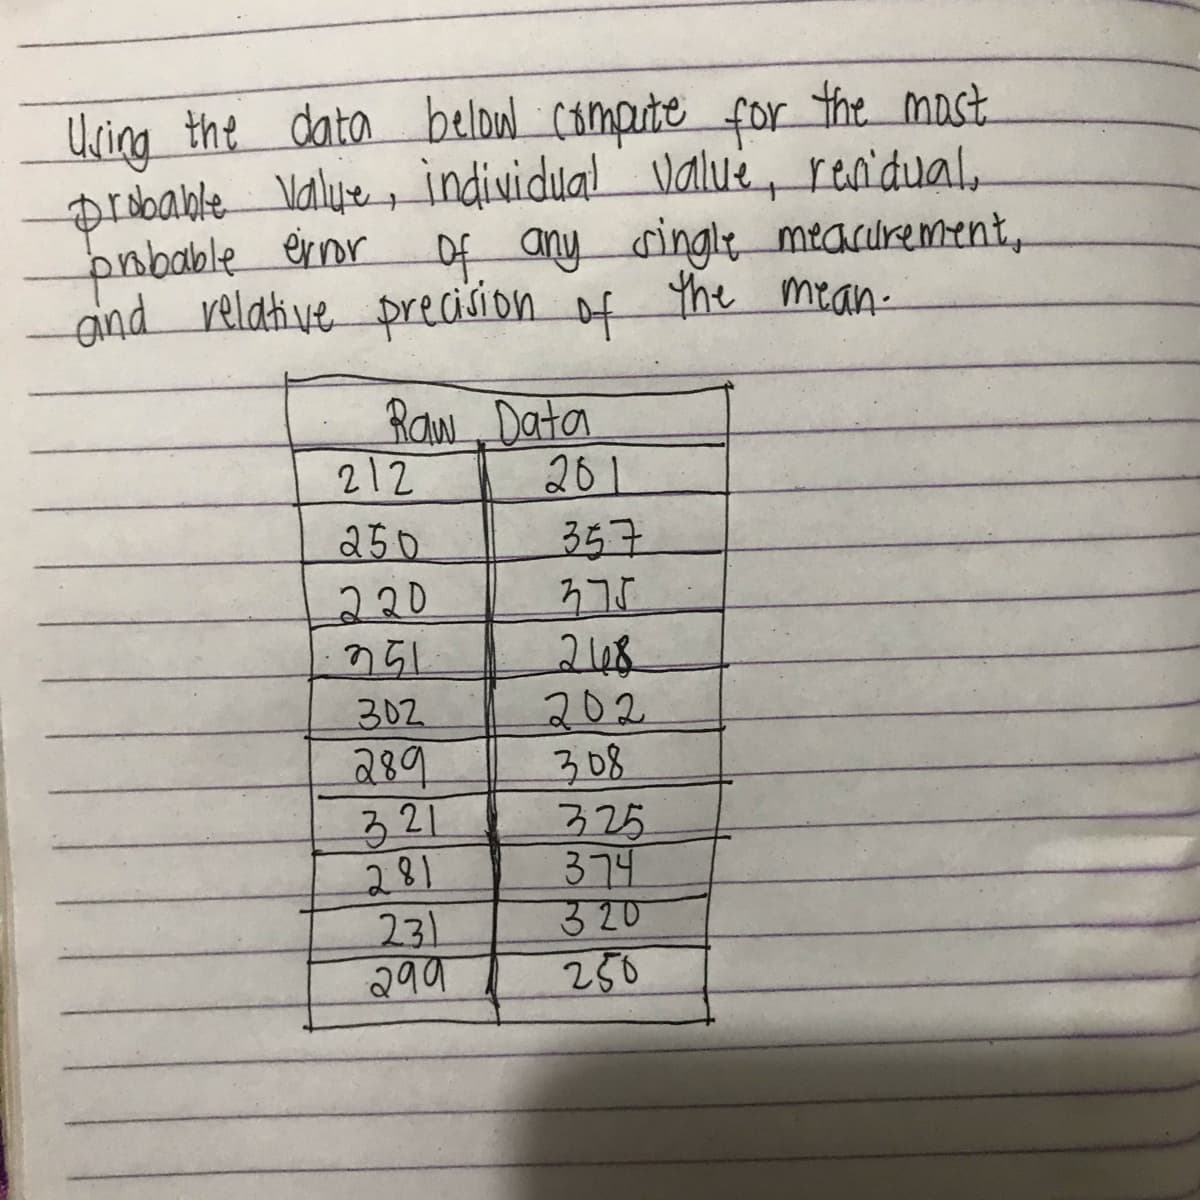 Using the data below compute for the most
probable value, individual value, residual,
probable error of any single measurement,
and relative precision of the mean.
Raw Data
212 201
250 357
220 375
351 268
302 202
289 308
321 325
281 374
231 320
299 250